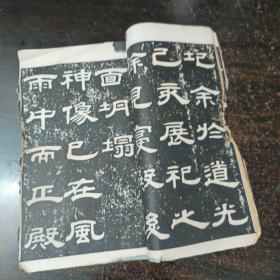 圮余於道光
己亥展祀之
見寢殿後
宣坍塌
神像已在風
雨中而正殿